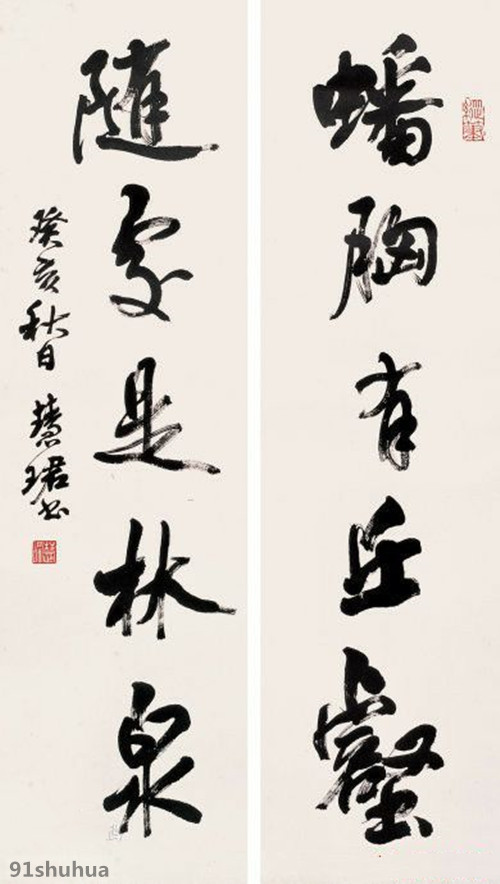 蟠胸有丘壑
随处是林泉
癸亥秋日 慧珺书
91shuhua